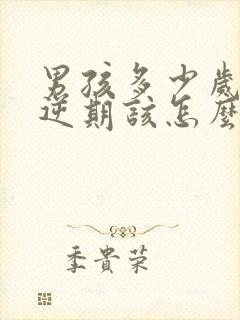 男孩多少歲
逆期該怎麼
季貴荣